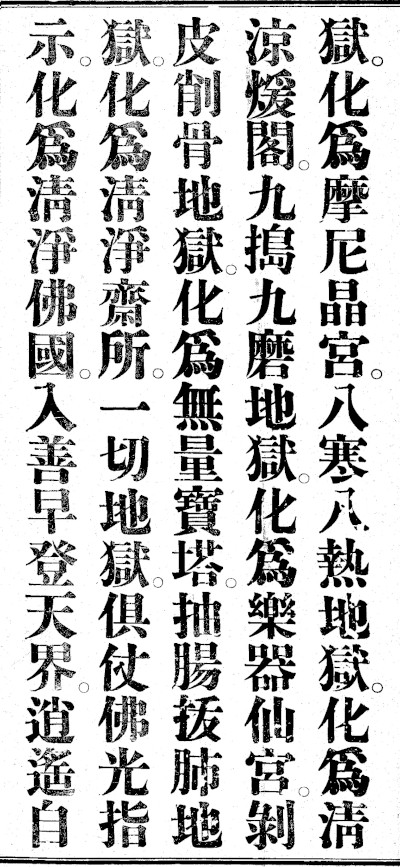 獄。化爲摩尼晶宮。八寒八熱地獄。化爲淸
涼煖閣。九搗九磨地獄。化爲樂器仙宮。剝
皮削骨地獄。化爲無量寶塔。抽腸拔肺地
獄。化爲淸淨齋所。一切地獄。俱仗佛光指
示。化爲淸淨佛國。入善早登天界。逍遙自